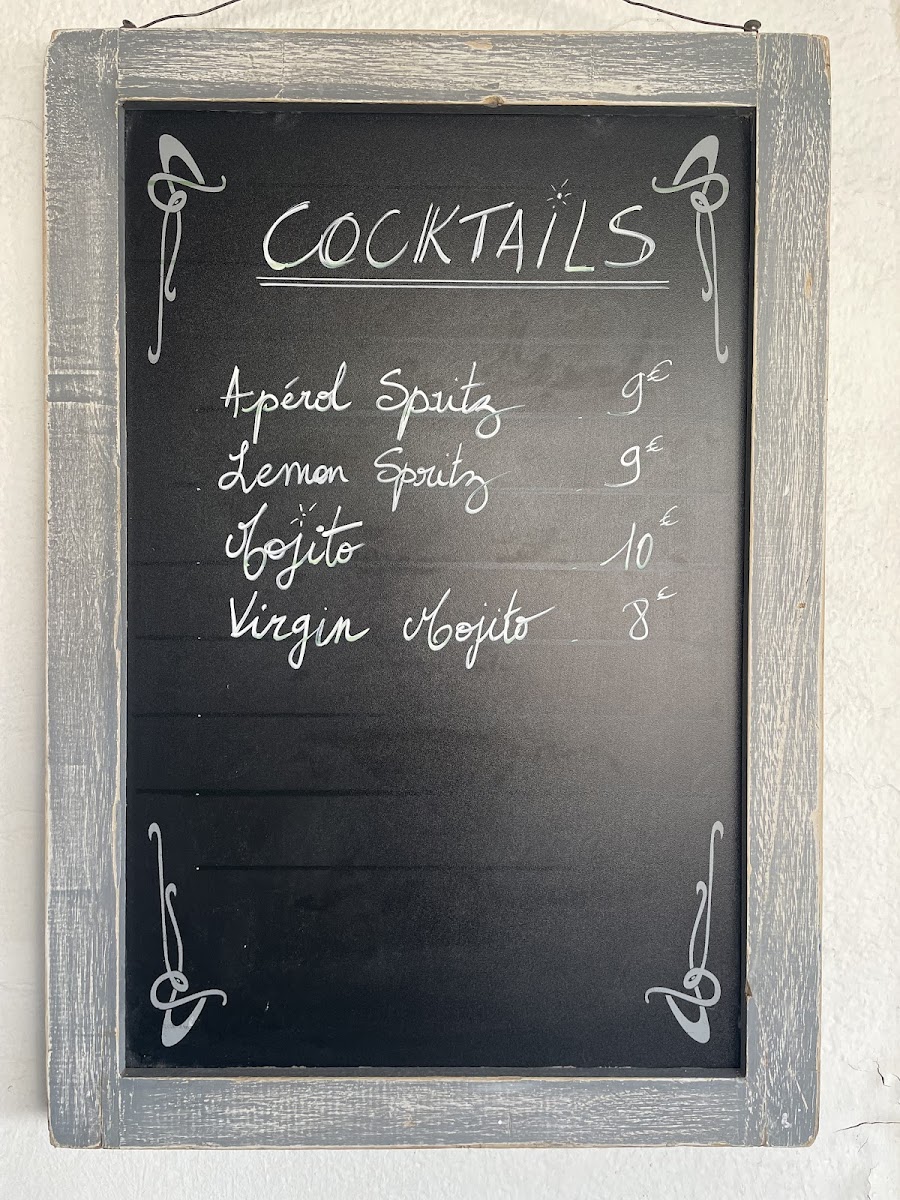 COCKTAiLS
Apérol Spritz 9€
Lemon Spritz 9€
Mojito 10€
Virgin Mojito 8€